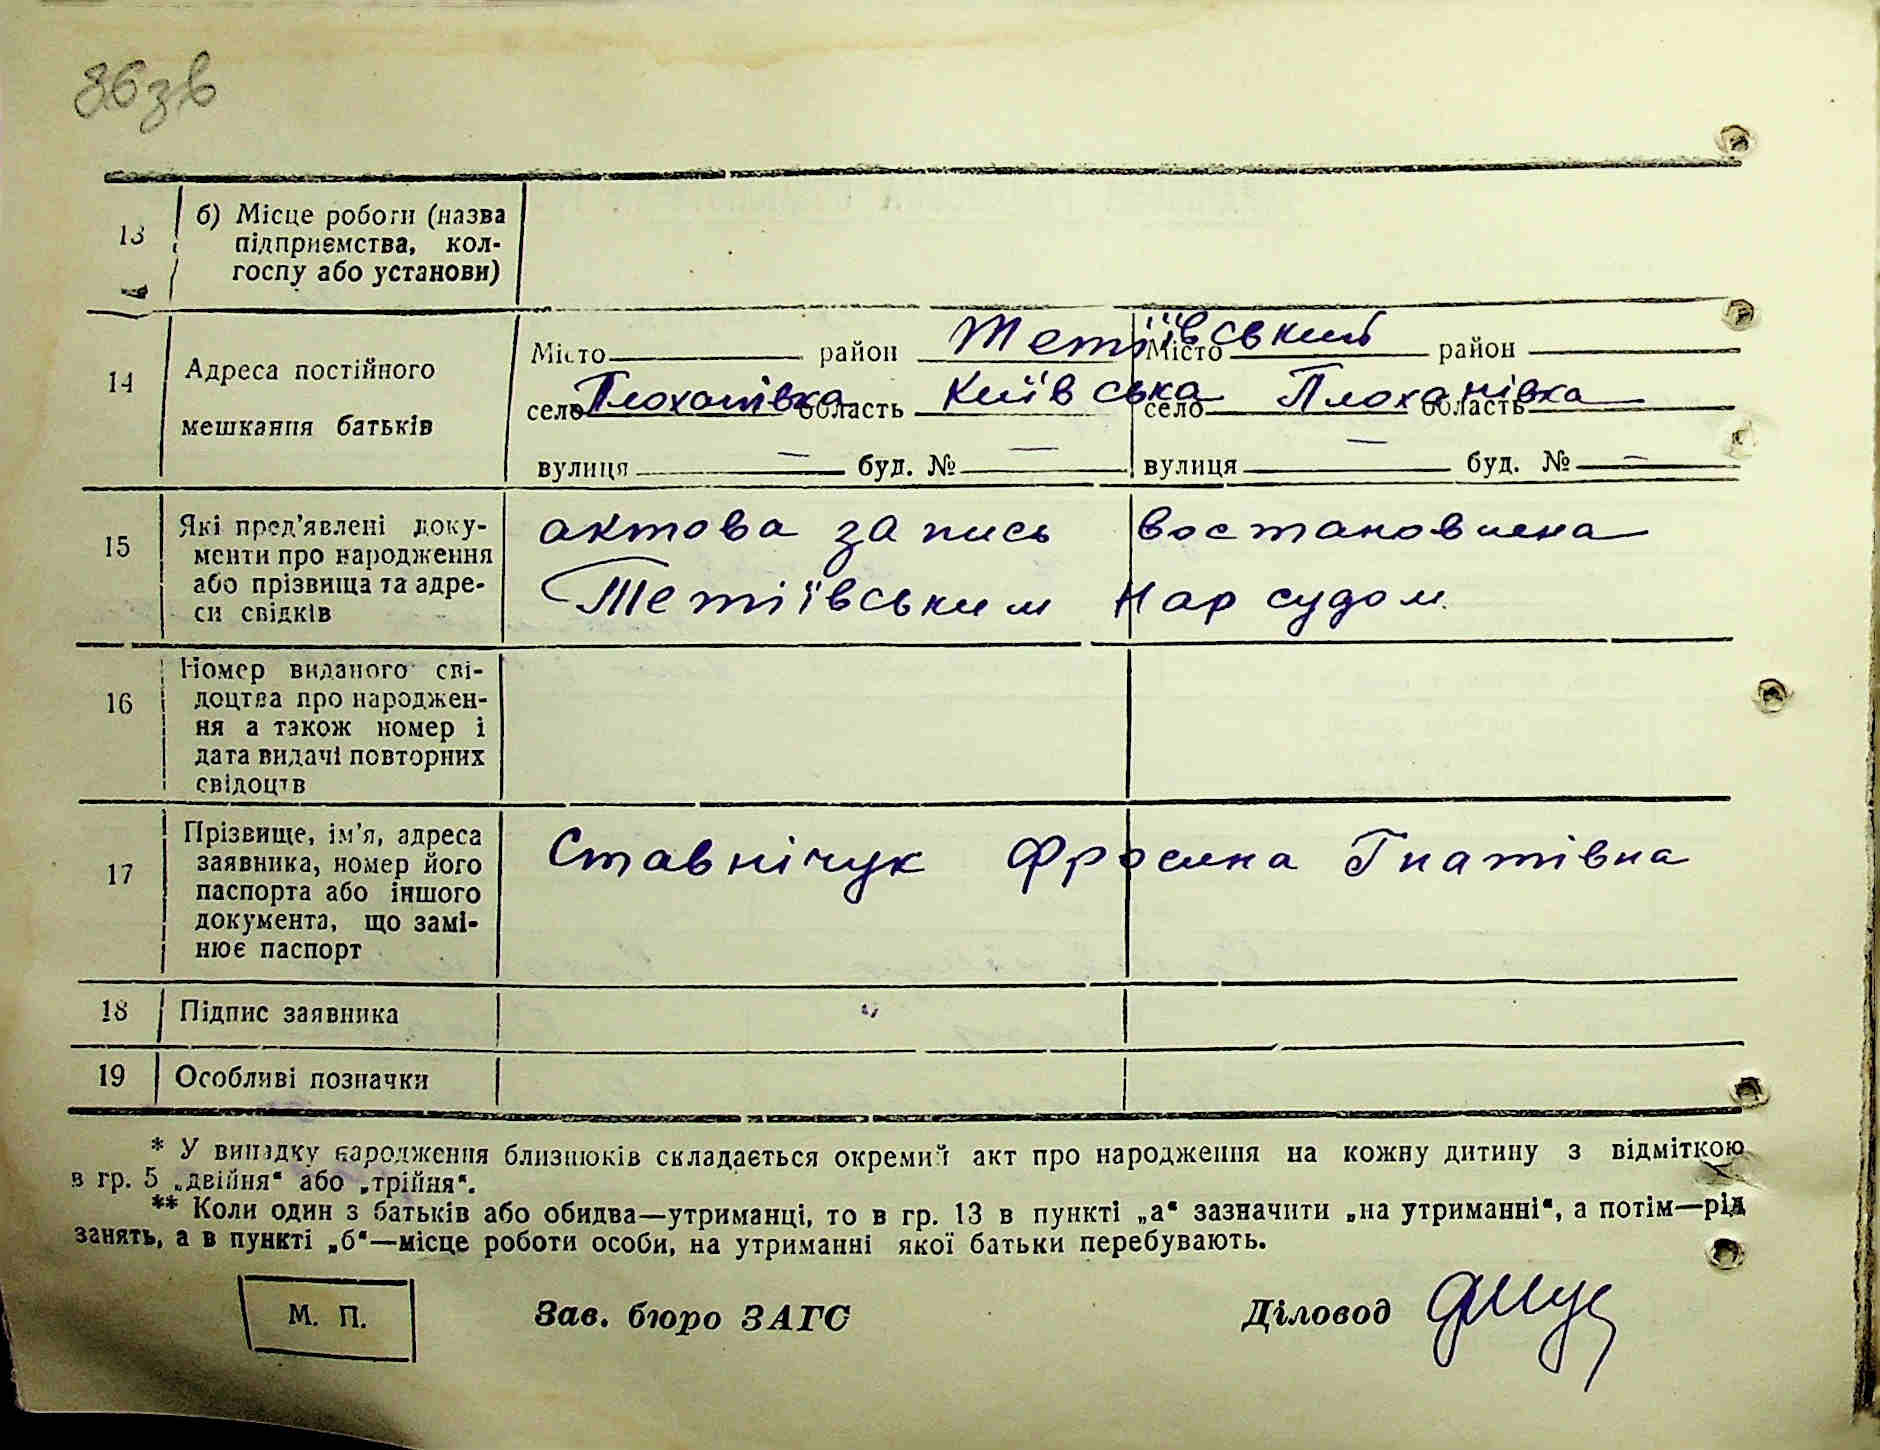 86зв
13 б) Місце роботи (назва
підприємства, кол-
госпу або установи)
14 Адреса постійного
мешкання батьків
Місто район Тетіївський Місто район
село Плоханівка область Київська село Плоханівка область
вулиця — буд. № — вулиця — буд. № —
15 Які пред'явлені доку-
менти про народження
або прізвища та адре-
си свідків
актова запись востановлена
Тетіївським Нар судом.
16 Номер виданого сві-
доцтва про народжен-
ня а також номер і
дата видачі повторних
свідоцтв
17 Прізвище, ім'я, адреса
заявника, номер його
паспорта або іншого
документа, що замі-
нює паспорт
Ставнічук Фросина Гнатівна
18 Підпис заявника
19 Особливі позначки
* У випадку народження близнюків складається окремий акт про народження на кожну дитину з відміткою
в гр. 5 „двійня“ або „трійня“.
** Коли один з батьків або обидва—утриманці, то в гр. 13 в пункті „а“ зазначити „на утриманні“, а потім—рід
занять, а в пункті „б“—місце роботи особи, на утриманні якої батьки перебувають.
М. П. Зав. бюро ЗАГС Діловод